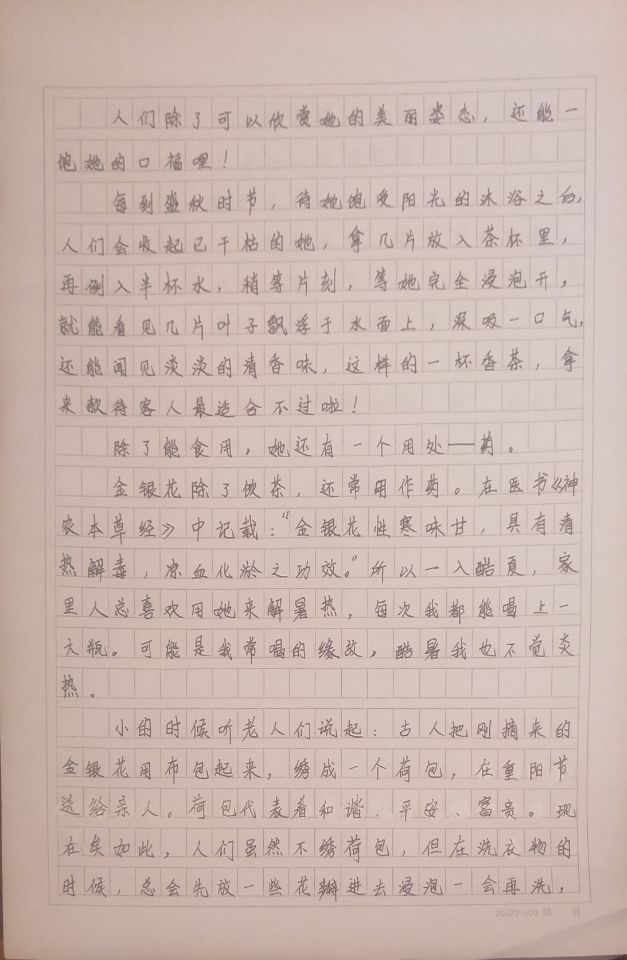 人们除了可以欣赏她的美丽姿态，还能一
饱她的口福哩！
每到盛秋时节，待她饱受阳光的沐浴之后，
人们会收起已干枯的她，拿几片放入茶杯里，
再倒入半杯水，稍等片刻，等她完全浸泡开，
就能看见几片叶子飘浮于水面上，深吸一口气，
还能闻见淡淡的清香味，这样的一杯香茶，拿
来款待客人最适合不过啦！
除了能食用，她还有一个用处——药。
金银花除了饮茶，还常用作药。在医书《神
农本草经》中记载：“金银花性寒味甘，具有清
热解毒，凉血化淤之功效。”所以一入酷夏，家
里人总喜欢用她来解暑热，每次我都能喝上一
大瓶。可能是我常喝的缘故，酷暑我也不觉炎
热。
小的时候听老人们说起：古人把刚摘来的
金银花用布包起来，绣成一个荷包，在重阳节
送给亲人。荷包代表着和谐、平安、富贵。现
在矣如此，人们虽然不绣荷包，但在洗衣物的
时候，总会先放一些花瓣进去浸泡一会再洗，
20×20=400 第 页